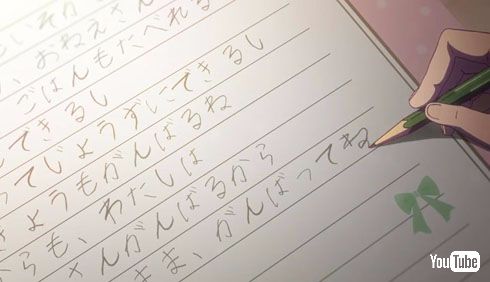 いそが
、おねえさん
ごはんもたべれる
できるし
ってじょうずにできるし
きょうもがんばるね
からも、わたしは
さんがんばるから
まま、がんばってね
YouTube